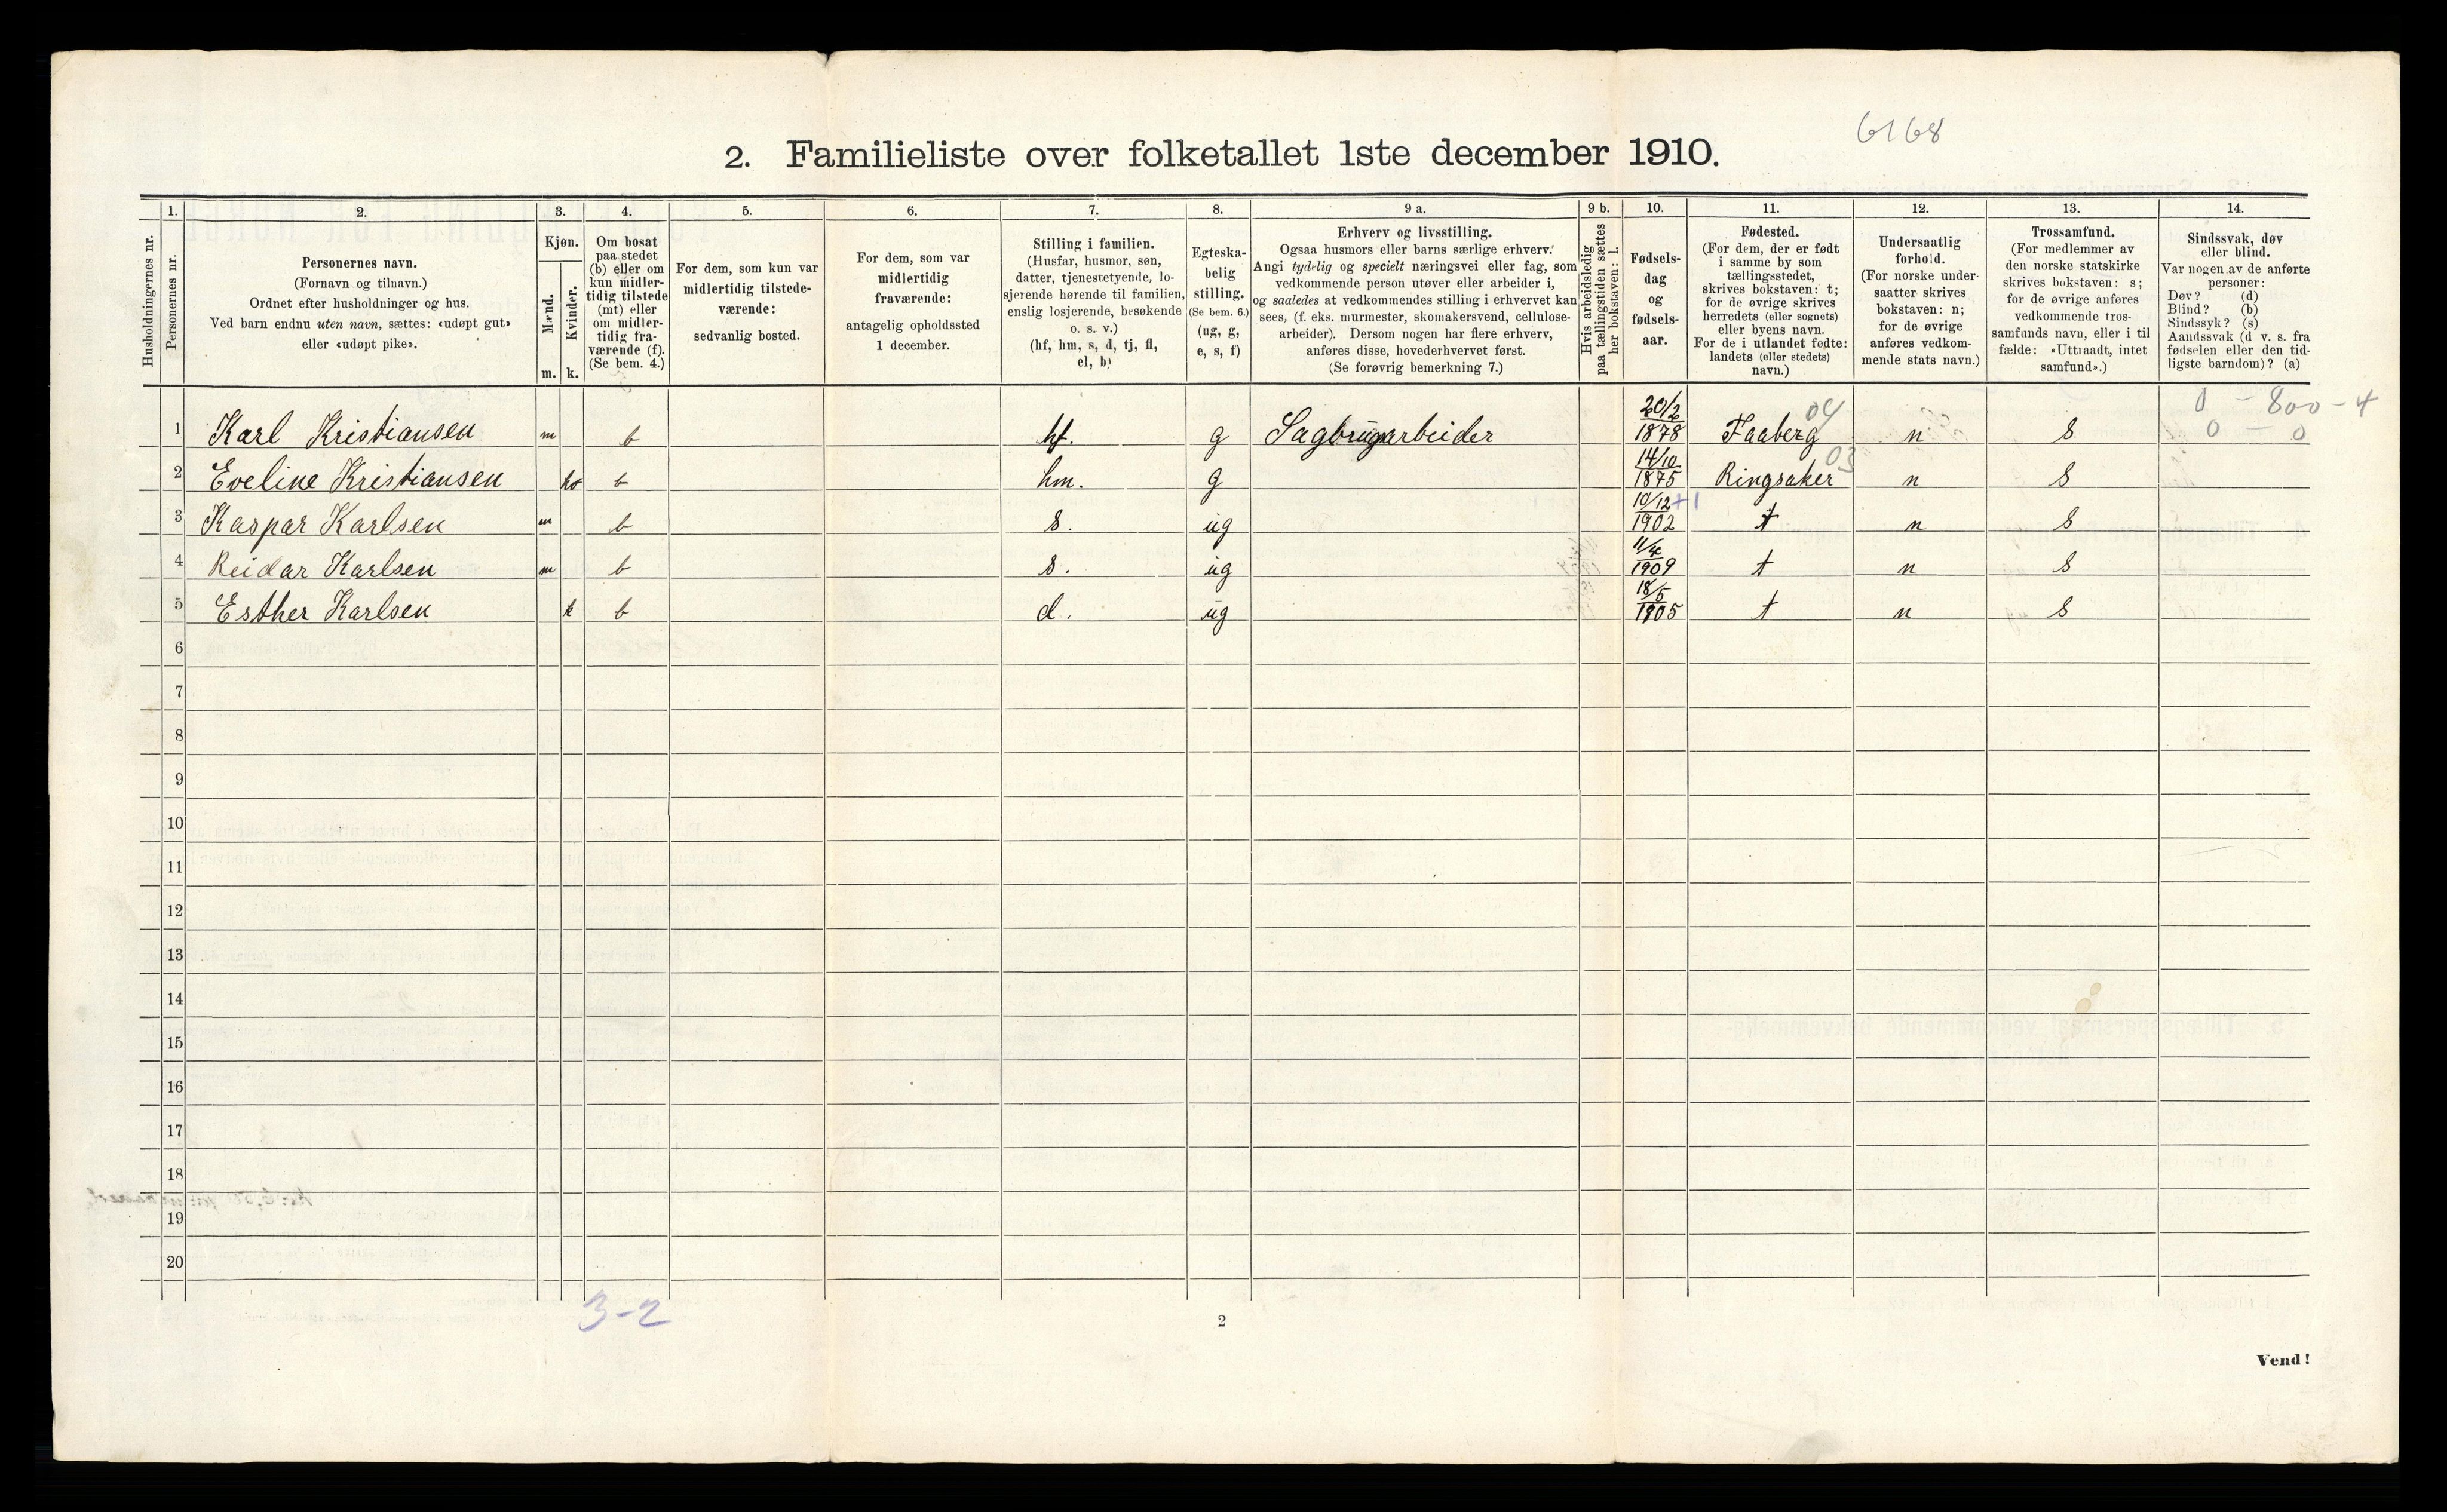 6168
2. Familieliste over folketallet 1ste december 1910.
Husholdningernes nr.
1.
Personernes nr.
2.
Personernes navn.
(Fornavn og tilnavn.)
Ordnet efter husholdninger og hus.
Ved barn endnu uten navn, sættes: «udøpt gut»
eller «udøpt pike».
3.
Kjøn.
Mænd.
Kvinder.
m. k.
4.
Om bosat
paa stedet
(b) eller om
kun midler-
tidig tilstede
(mt) eller
om midler-
tidig fra-
værende (f).
(Se bem. 4.)
5.
For dem, som kun var
midlertidig tilstede-
værende:
sedvanlig bosted.
6.
For dem, som var
midlertidig
fraværende:
antagelig opholdssted
1 december.
7.
Stilling i familien.
(Husfar, husmor, søn,
datter, tjenestetyende, lo-
sjerende hørende til familien,
enslig losjerende, besøkende
o. s. v.)
(hf, hm, s, d, tj, fl,
el, b)
8.
Egteska-
belig
stilling.
(Se bem. 6.)
(ug, g,
e, s, f)
9 a.
Erhverv og livsstilling.
Ogsaa husmors eller barns særlige erhverv.
Angi tydelig og specielt næringsvei eller fag, som
vedkommende person utøver eller arbeider i,
og saaledes at vedkommendes stilling i erhvervet kan
sees, (f. eks. murmester, skomakersvend, cellulose-
arbeider). Dersom nogen har flere erhverv,
anføres disse, hovederhvervet først.
(Se forøvrig bemerkning 7.)
9 b.
Hvis arbeidsledig
paa tællingstiden sættes
her bokstaven: l.
10.
Fødsels-
dag
og
fødsels-
aar.
11.
Fødested.
(For dem, der er født
i samme by som
tællingsstedet,
skrives bokstaven: t;
for de øvrige skrives
herredets (eller sognets)
eller byens navn.
For de i utlandet fødte:
landets (eller stedets)
navn.)
12.
Undersaatlig
forhold.
(For norske under-
saatter skrives
bokstaven: n;
for de øvrige
anføres vedkom-
mende stats navn.)
13.
Trossamfund.
(For medlemmer av
den norske statskirke
skrives bokstaven: s;
for de øvrige anføres
vedkommende tros-
samfunds navn, eller i til
fælde: «Uttraadt, intet
samfund».)
14.
Sindssvak, døv
eller blind.
Var nogen av de anførte
personer:
Døv? (d)
Blind? (b)
Sindssyk? (s)
Aandssvak (d v. s. fra
fødselen eller den tid-
ligste barndom)? (a)
0 - 800 - 4
0 - 0
1 Karl Kristiansen m b hf. g Sagbrugarbeider 20/2 1878 Faaberg 04 n s
2 Eveline Kristiansen k b hm. g 14/10 1875 Ringsaker 03 n s
3 Kaspar Karlsen m b s. ug 10/12 +1 1902 t n s
4 Reidar Karlsen m b s. ug 11/4 1909 t n s
5 Esther Karlsen k b d. ug 18/5 1905 t n s
6
7
8
9
10
11
12
13
14
15
16
17
18
19
20
3-2
2
Vend!